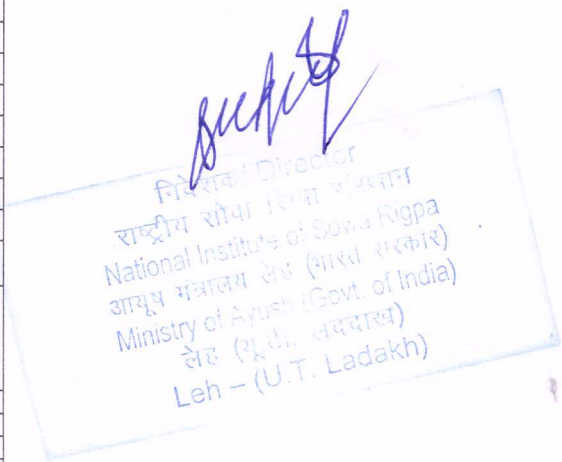 निदेशक/Director
राष्ट्रीय सोवा रिग्पा संस्थान
National Institute of Sowa Rigpa
आयुष मंत्रालय लेह (भारत सरकार)
Ministry of Ayush (Govt. of India)
लेह (यू.टी. लद्दाख)
Leh – (U.T. Ladakh)